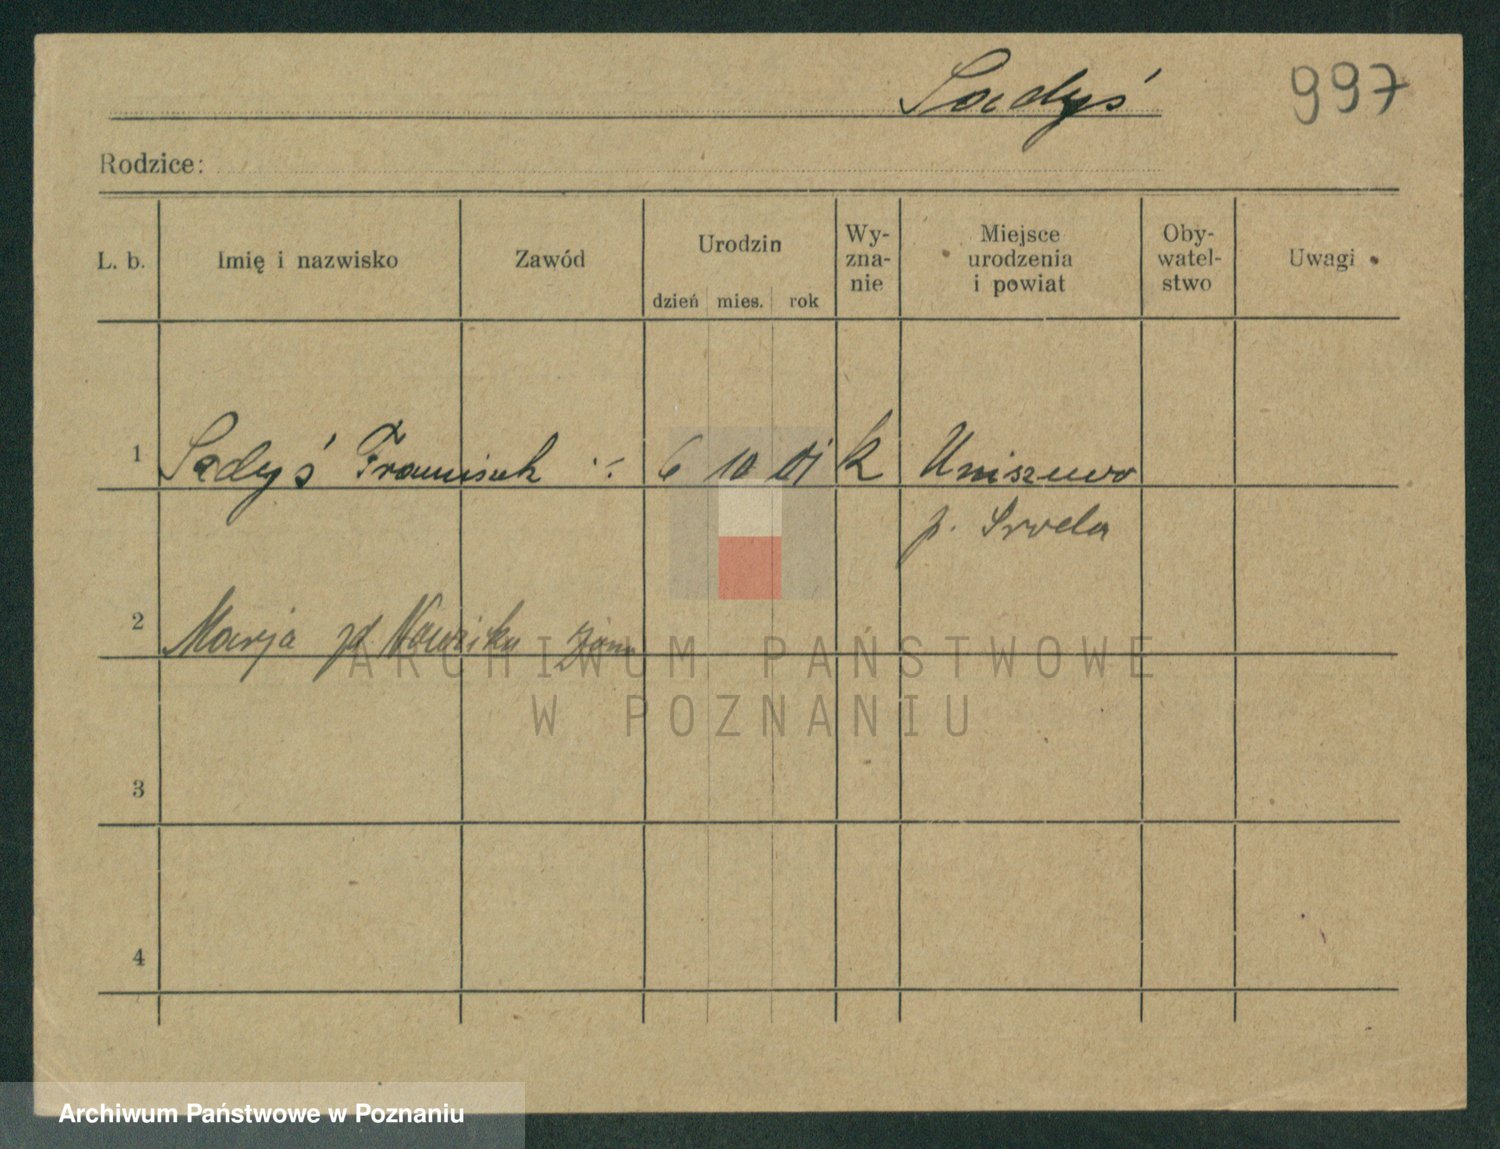 Sadyś 997
Rodzice:
L. b. Imię i nazwisko Zawód Urodzin dzień mies. rok Wy-zna-nie Miejsce urodzenia i powiat Oby-watel-stwo Uwagi
1 Sadyś Franciszek 6 10 01 k Uniszewo
p. Sroda
2 Marja zd
3
4
ARCHIWUM PAŃSTWOWE
W POZNANIU
Archiwum Państwowe w Poznaniu